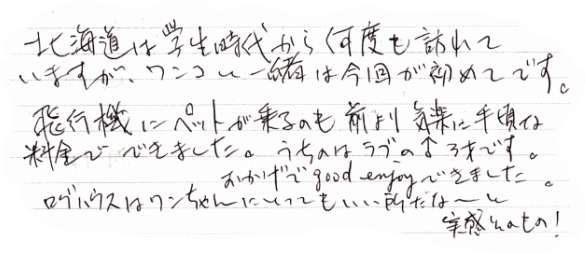 北海道は学生時代から何度も訪れて
いますが、ワンコと一緒は今回が初めてです。
飛行機にペットが乗るのも前より気楽に手頃な
料金でできました。うちのはラブの↑3才です。
おかげでgood enjoyできました。
ログハウスはワンちゃんにとってもいい所だな〜と
実感そのもの!